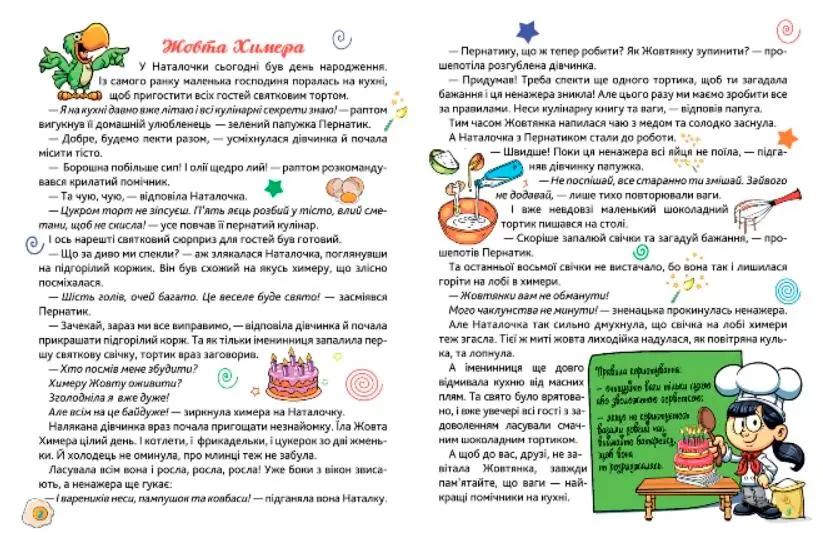 Жовта Химера
У Наталочки сьогодні був день народження.
Із самого ранку маленька господиня поралась на кухні,
щоб пригостити всіх гостей святковим тортом.
— Я на кухні давно вже літаю і всі кулінарні секрети знаю! — раптом
вигукнув її домашній улюбленець — зелений папужка Пернатик.
— Добре, будемо пекти разом, — усміхнулася дівчинка й почала
місити тісто.
— Борошна побільше сип! І олії щедро лий! — раптом розкоманду-
вався крилатий помічник.
— Та чую, чую, — відповіла Наталочка.
— Цукром торт не зіпсуєш. П'ять яєць розбий у тісто, влий сме-
тани, щоб не скисла! — усе повчав її пернатий кулінар.
І ось нарешті святковий сюрприз для гостей був готовий.
— Що за диво ми спекли? — аж злякалася Наталочка, поглянувши
на підгорілий коржик. Він був схожий на якусь химеру, що злісно
посміхалась.
— Шість голів, очей багато. Це веселе буде свято! — засміявся
Пернатик.
— Зачекай, зараз ми все виправимо, — відповіла дівчинка й почала
прикрашати підгорілий корж. Та як тільки іменинниця запалила пер-
шу святкову свічку, тортик враз заговорив.
— Хто посмів мене збудити?
Химеру Жовту оживити?
Зголодніла я вже дуже!
Але всім на це байдуже! — зиркнула химера на Наталочку.
Налякана дівчинка враз почала пригощати незнайомку. Їла Жовта
Химера цілий день. І котлети, і фрикадельки, і цукерок зо дві жмень-
ки. Й холодець не оминула, про млинці теж не забула.
Ласувала всім вона і росла, росла, росла! Уже боки з вікон звиса-
ють, а ненажера ще гукає:
— І вареників неси, пампушок та ковбаси! — підганяла вона Наталку.
— Пернатику, що ж тепер робити? Як Жовтянку зупинити? — про-
шепотіла розгублена дівчинка.
— Придумав! Треба спекти ще одного тортика, щоб ти загадала
бажання і ця ненажера зникла! Але цього разу ми маємо зробити все
за правилами. Неси кулінарну книгу та ваги, — відповів папуга.
Тим часом Жовтянка напилася чаю з медом та солодко заснула.
А Наталочка з Пернатиком стали до роботи.
— Швидше! Поки ця ненажера всі яйця не поїла, — підга-
няв дівчинку папужка.
— Не поспішай, все старанно ти змішай. Зайвого
не додавай, — лише тихо повторювали ваги.
І вже невдовзі маленький шоколадний
тортик пишався на столі.
— Скоріше запалюй свічки та загадуй бажання, — про-
шепотів Пернатик.
Та останньої восьмої свічки не вистачало, бо вона так і лишилася
горіти на лобі в химери.
— Жовтянки вам не обманути!
Мого чаклунства не минути! — зненацька прокинулась ненажера.
Але Наталочка так сильно дмухнула, що свічка на лобі химери
теж згасла. Тієї ж миті жовта лиходійка надулася, як повітряна куль-
ка, та лопнула.
А іменинниця ще довго
відмивала кухню від масних
плям. Та свято було врятова-
но, і вже увечері всі гості з за-
доволенням ласували смач-
ним шоколадним тортиком.
А щоб до вас, друзі, не за-
вітала Жовтянка, завжди
пам'ятайте, що ваги — най-
кращі помічники на кухні.
Правила користування:
– очищуйте ваги тільки сухою
або зволоженою серветкою;
– якщо не користуєтеся
вагами довгий час,
виймайте батарейку,
щоб вона
не розрядилась.